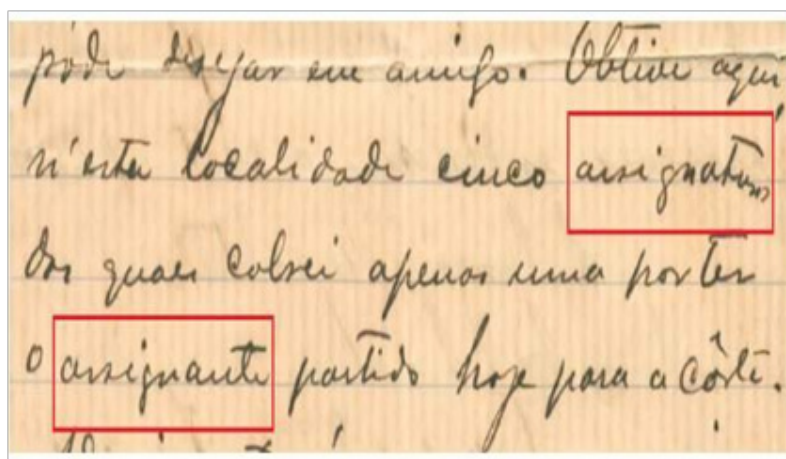 póde desejar um amigo. Obtive aqui
n'esta localidade cinco assignaturas
das quaes cobrei apenas uma por ter
o assignante partido hoje para a Côrte.